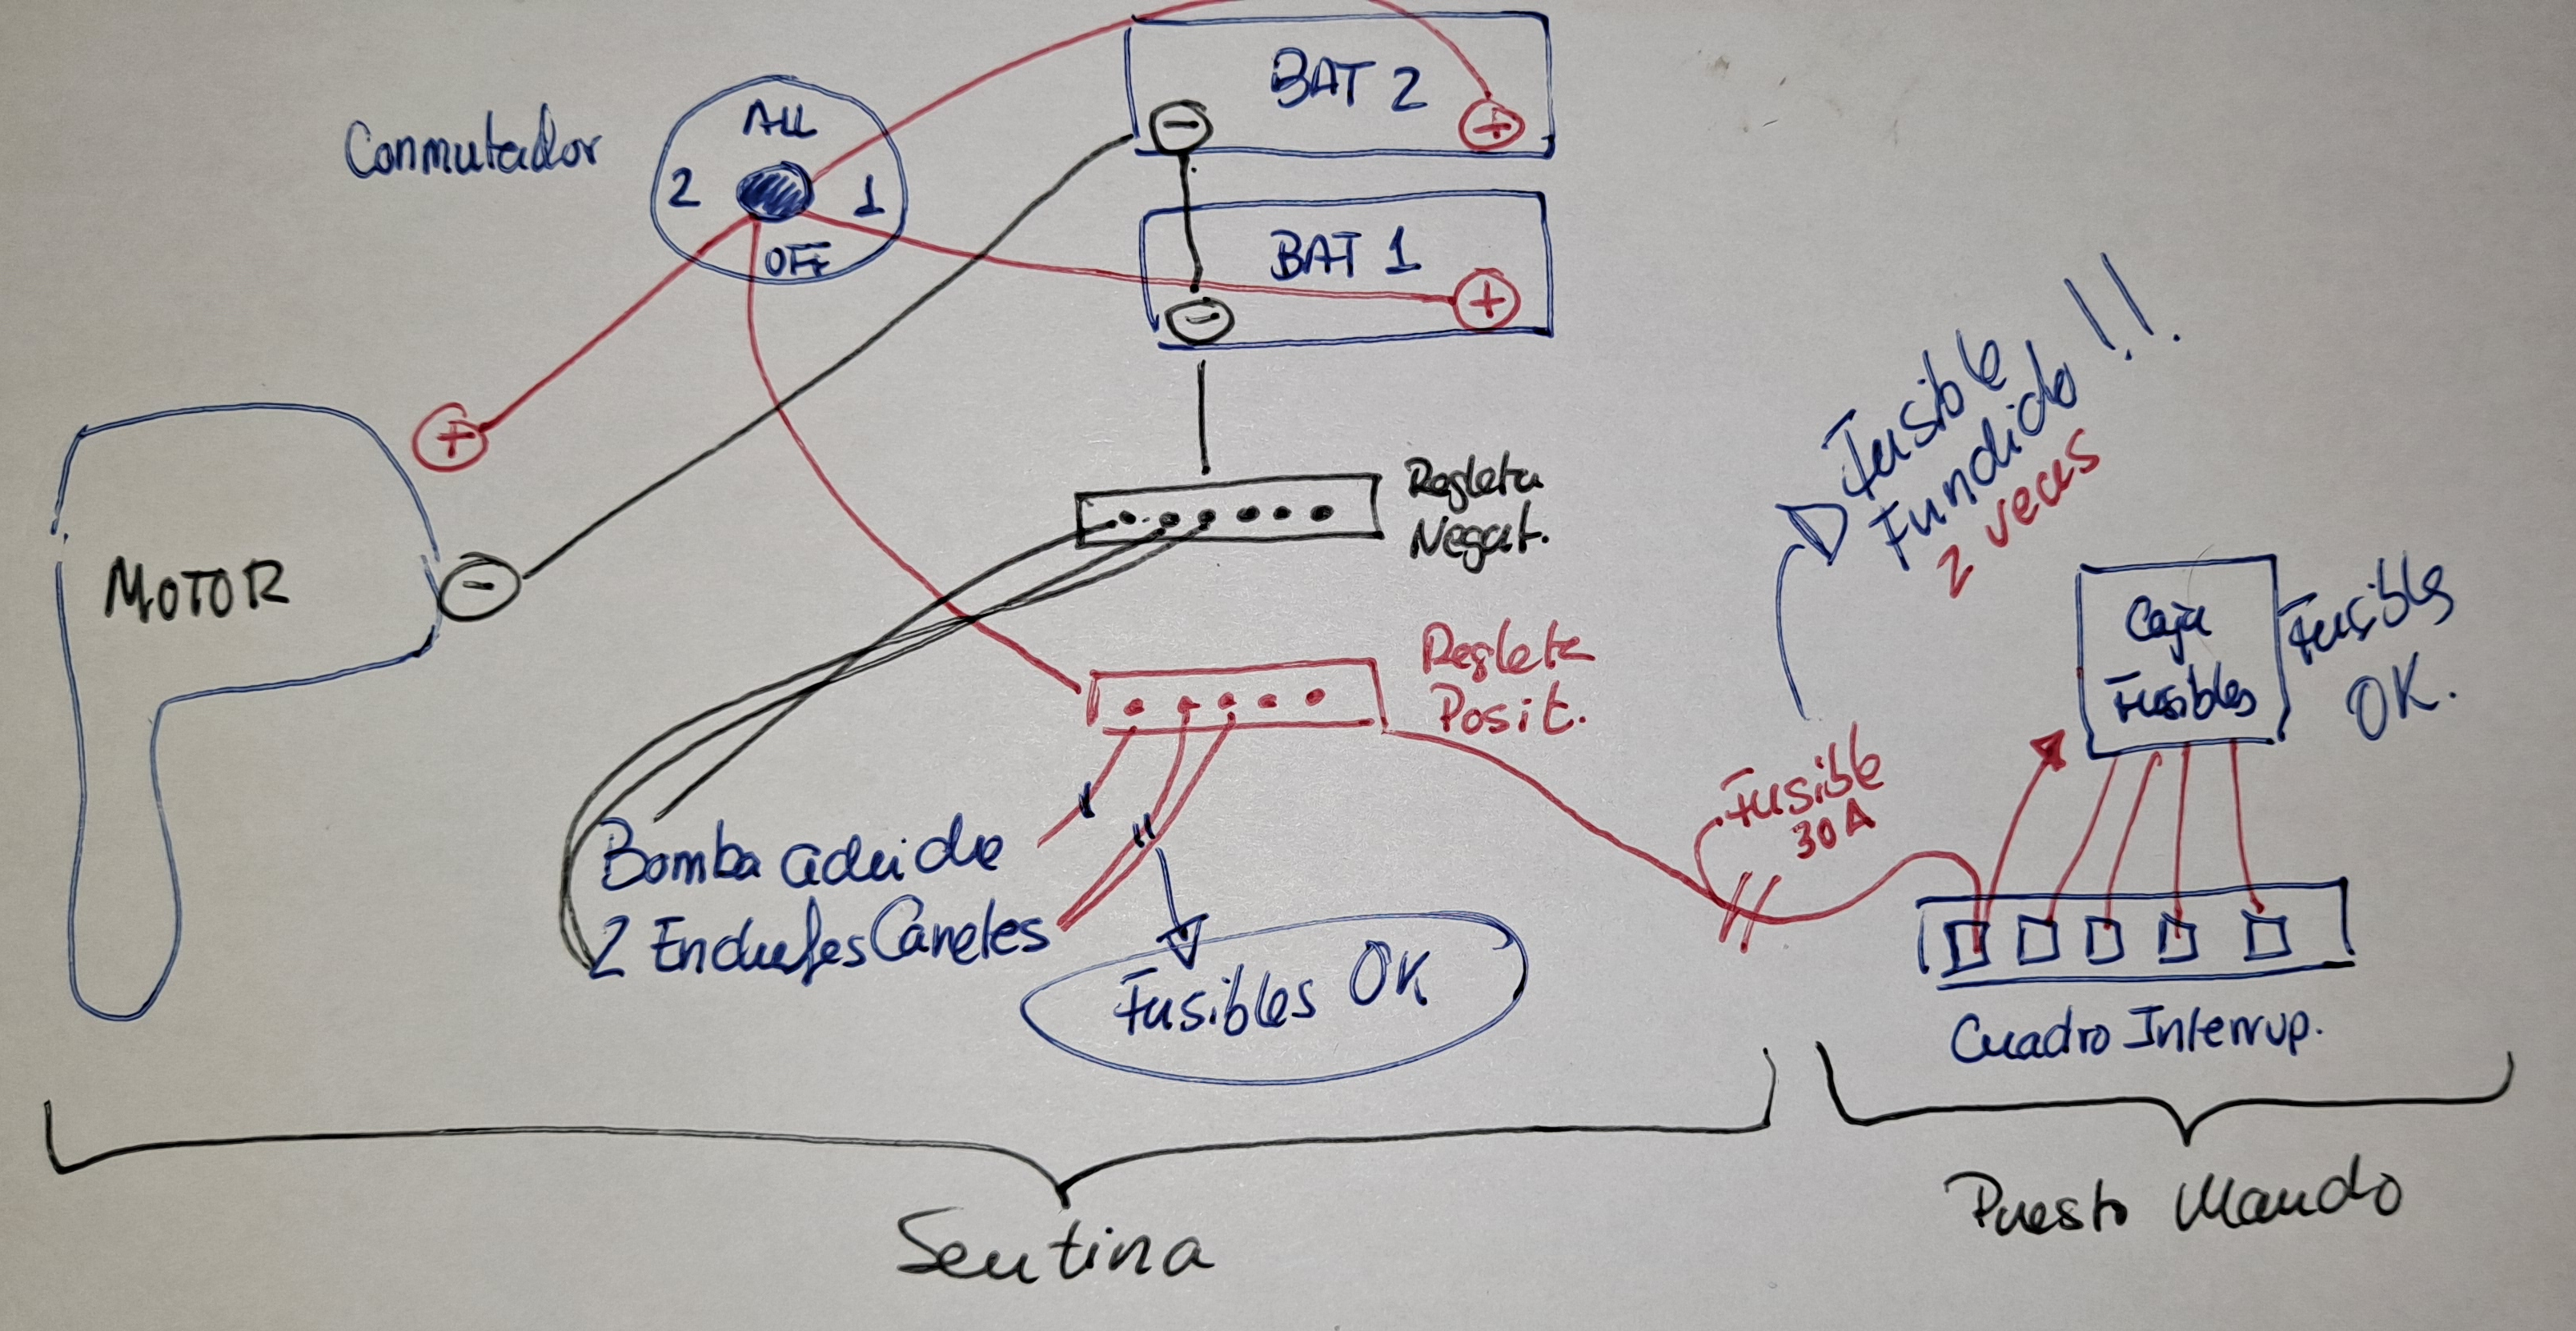 Conmutador
ALL
2
1
OFF
BAT 2
-
+
BAT 1
-
+
+
-
MOTOR
Regleta
Negat.
Regleta
Posit.
Fusible
Fundido !!
2 veces
Fusible
30 A
Caja
Fusibles
Fusibles
OK.
Bomba
2 Enchufes Carretes
Fusibles OK
Cuadro Interrup.
Sentina
Puesto Mando